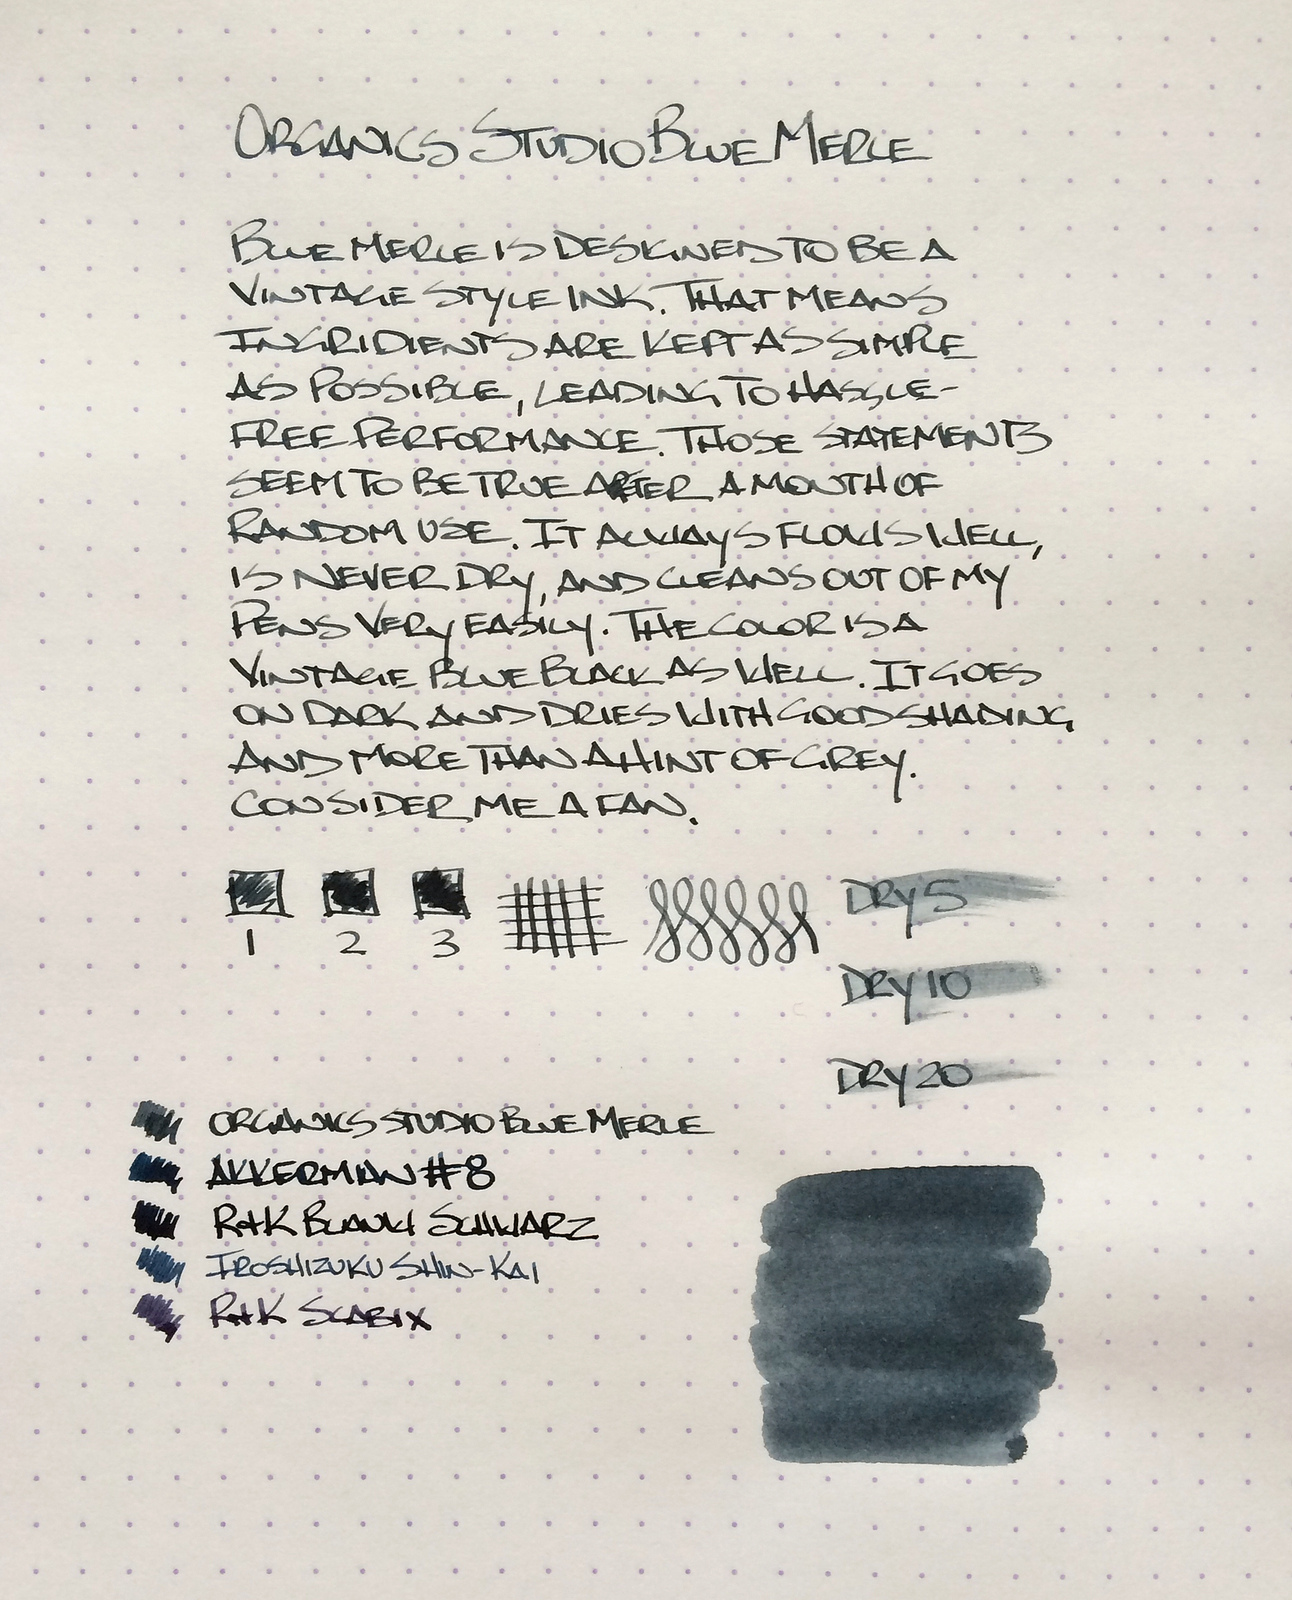 Organics Studio Blue Merle
Blue Merle is designed to be a
vintage style ink. That means
ingridients are kept as simple
as possible, leading to hassle-
free performance. Those statements
seem to be true after a month of
random use. It always flows well,
is never dry, and cleans out of my
pens very easily. The color is a
vintage blue black as well. It goes
on dark and dries with good shading
and more than a hint of grey.
Consider me a fan.
1 2 3
Dry 5
Dry 10
Dry 20
Organics Studio Blue Merle
Akkerman #8
R+K Blau Schwarz
Iroshizuku Shin-Kai
R+K Scabix